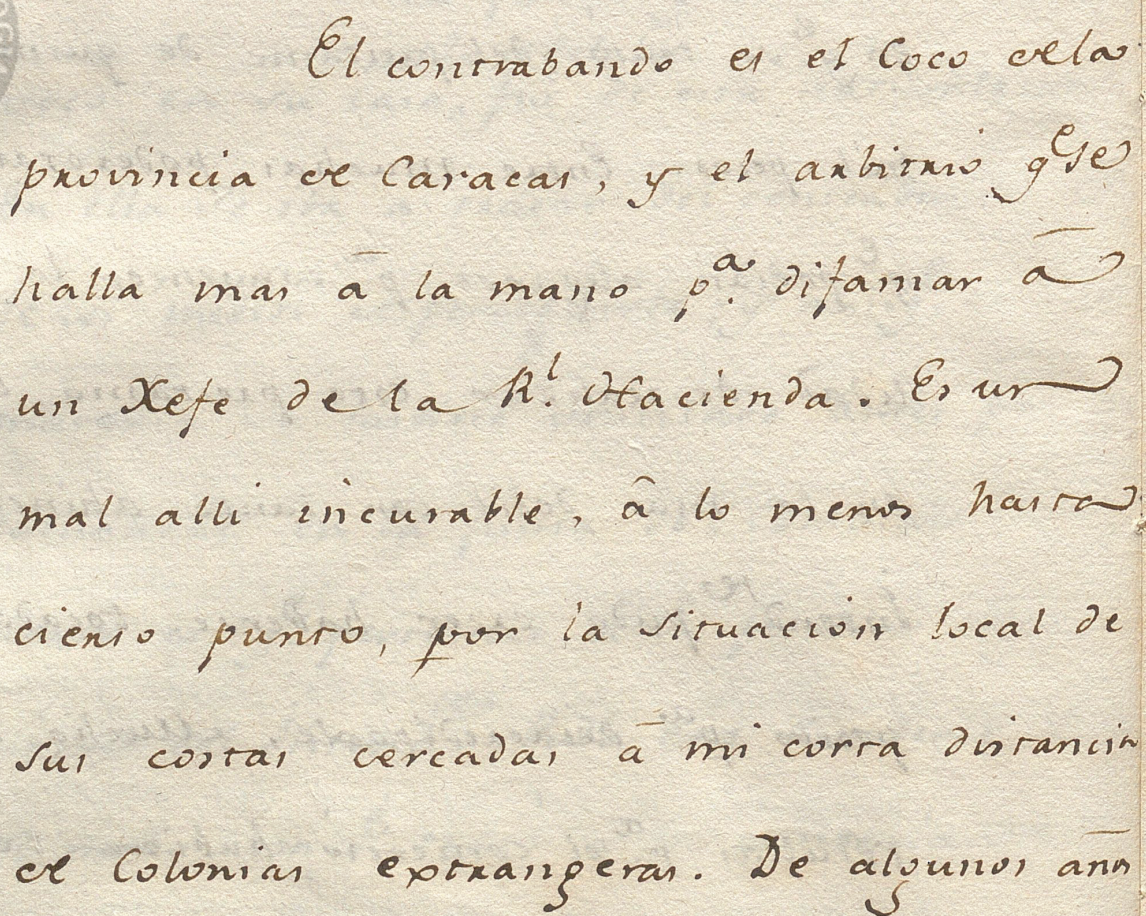 El contrabando es el Coco de la
provincia de Caracas, y el arbitrio q.e se
halla mas â la mano p.a difamar â
un Xefe de la R.l Hacienda. Es un
mal alli incurable, â lo menos hasta
cierto punto, por la situacion local de
sus costas cercadas â mi corta distancia
de Colonias extrangeras. De algunos años